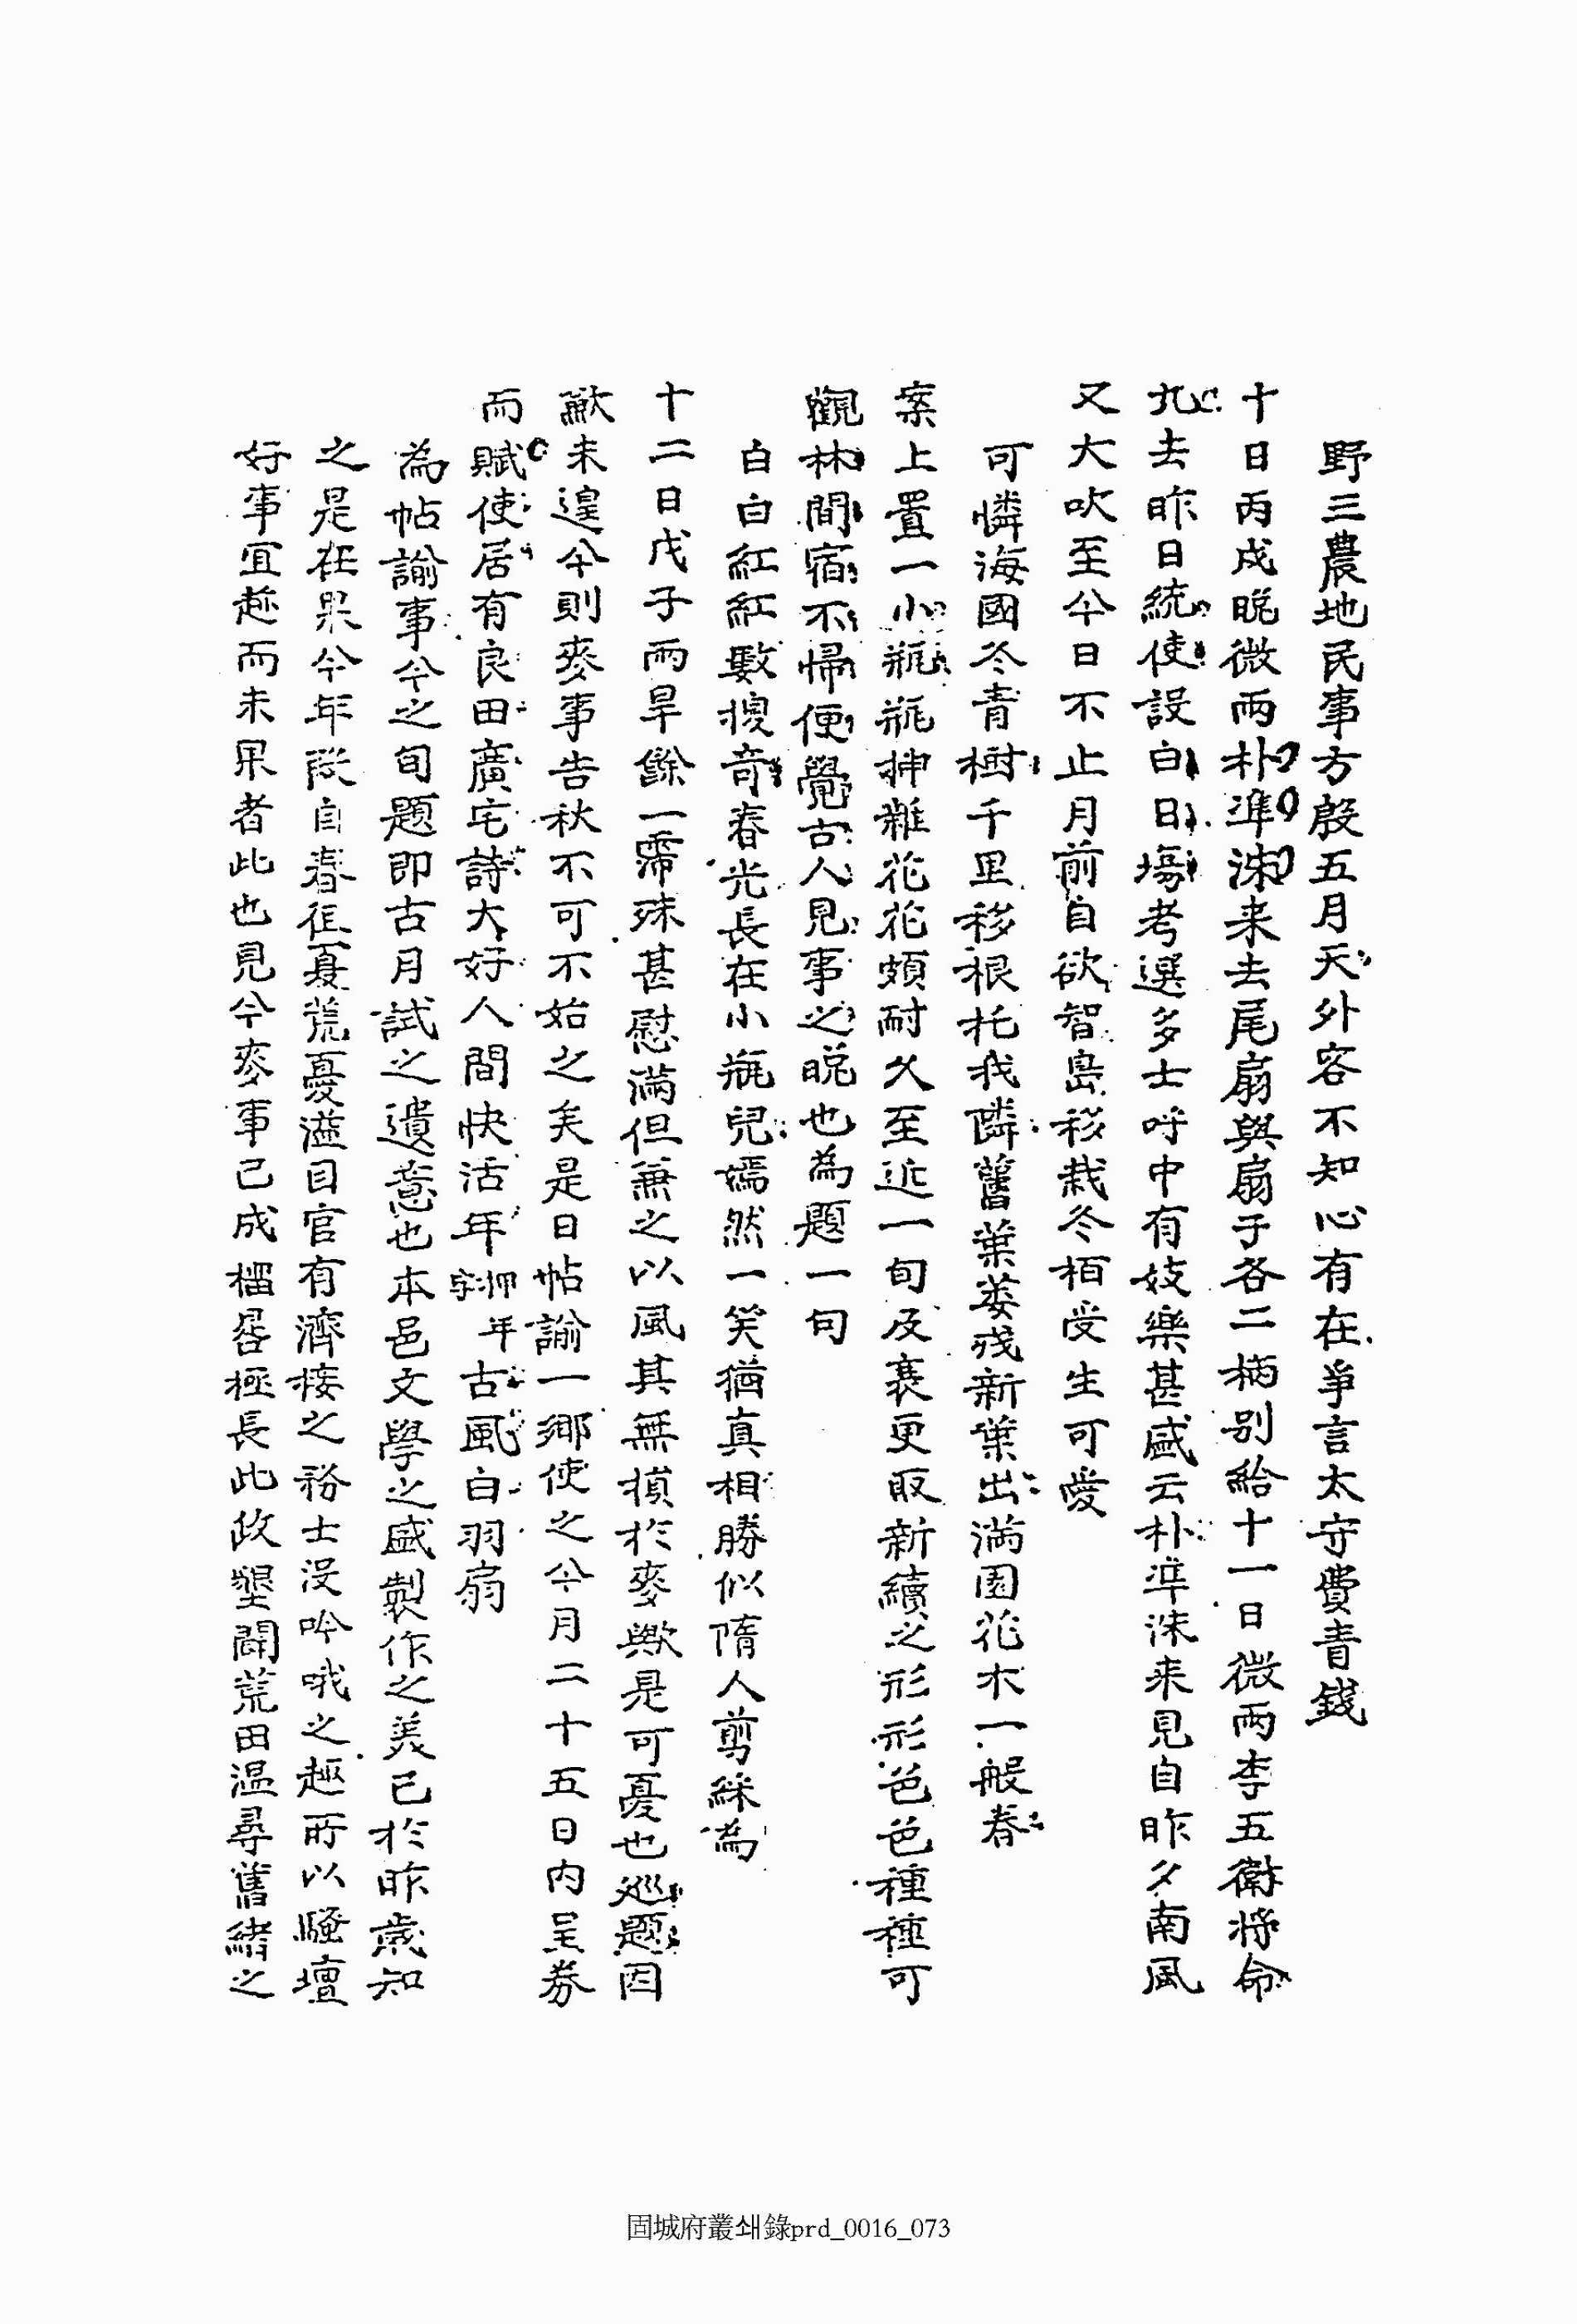 野三農地民事方殷五月天外客不知心有在爭言太守費青錢
十日丙戌晩微雨朴準洙来去尾扇與扇子各二柄別給十一日微雨李五衛將命
九去昨日統使設白日場考選多士呼中有妓樂甚盛云朴準洙来見自昨夕南風
又大吹至今日不止月前自欲智島移栽冬栢受生可愛
可憐海國冬青樹千里移根托我隣舊葉萎殘新葉出滿園花木一般春
案上置一小瓶瓶揷雜花花頗耐久至近一旬及衰更取新續之形形色色種種可
觀林間宿不歸便覺古人見事之晩也為題一句
白白紅紅數搜奇春光長在小瓶兒嫣然一笑猶真相勝似隋人剪綵為
十二日戊子雨旱餘一霈殊甚慰滿但兼之以風其無損於麥歟是可憂也巡題因
歉未遑今則麥事告秋不可不始之矣是日帖諭一鄉使之今月二十五日內呈券
而賦使居有良田廣宅詩大好人間快活年押年字古風白羽扇
為帖諭事今之旬題即古月試之遺意也本邑文學之盛製作之美已於昨歲知
之是在果今年段自春徂夏荒憂溢目官有濟接之務士沒吟哦之趣所以騷壇
好事宜趁而未果者此也見今麥事已成榴晷極長此政墾闢荒田温尋舊緒之
固城府叢쇄錄prd_0016_073